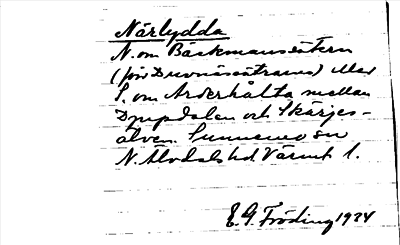 Närlydda
N. om Bäckmanssätern
(för Duvnässätrarna) eller
S. om Arderhålta mellan
Djupdalen och Skärjes-
älven. Sunnemo sn
N. Älvdals hd Värml l.
E. G. Fröding 1924